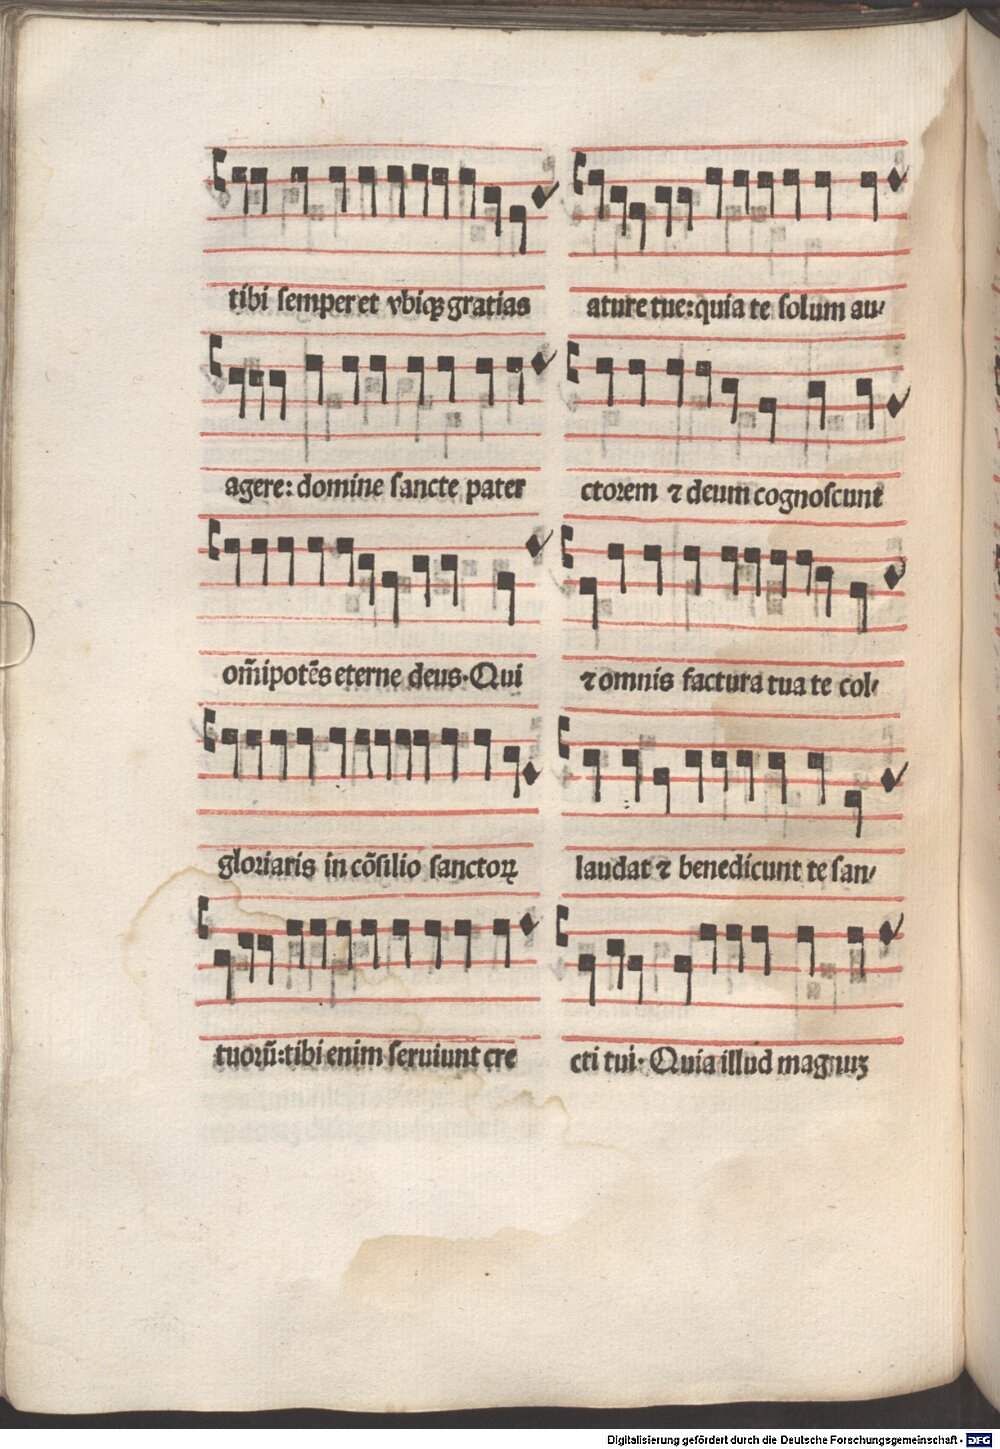 tibi semper et vbiqꝫ gratias
agere: domine sancte pater
om̄ipotēs eterne deus· Qui
gloriaris in cōsilio sanctoꝝ
tuorū: tibi enim seruiunt cre
ature tue: quia te solum au-
ctorem ⁊ deum cognoscunt
⁊ omnis factura tua te col-
laudat ⁊ benedicunt te san-
cti tui· Quia illud magnuꝫ
Digitalisierung gefördert durch die Deutsche Forschungsgemeinschaft - DFG